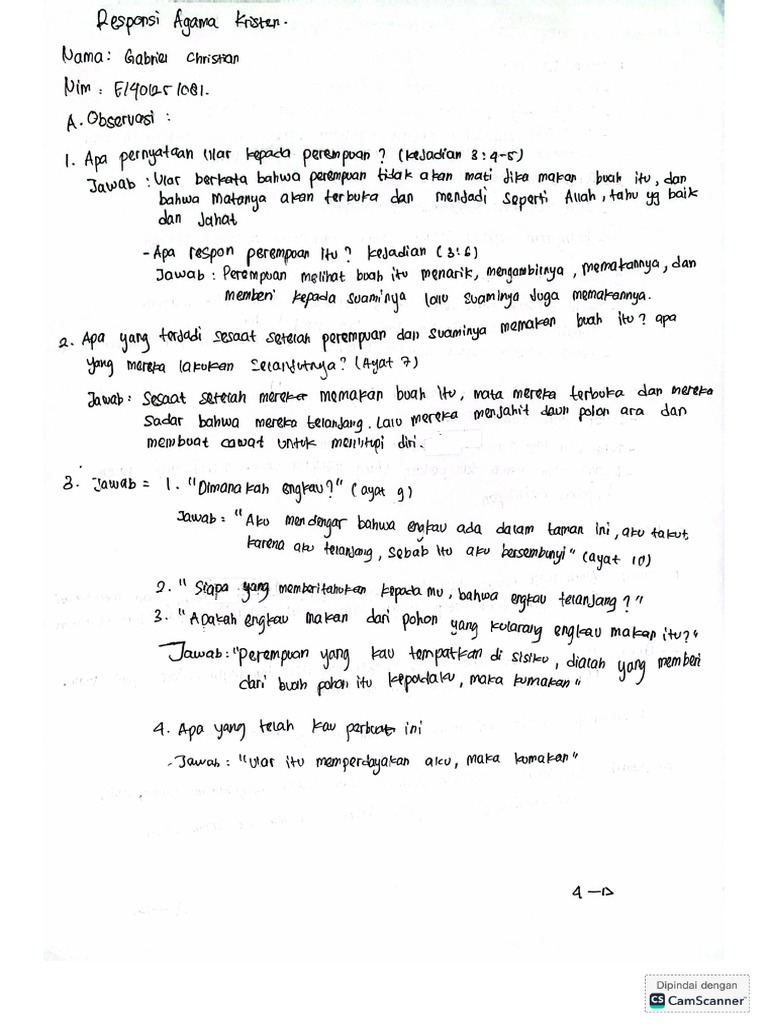 Responsi Agama Kristen.
Nama: Gabriel Christian
Nim : E1401251081.
A. Observasi :
1. Apa pernyataan Ular kepada perempuan ? (Kejadian 3 : 4-5)
Jawab : Ular berkata bahwa perempuan tidak akan mati jika makan buah itu, dan
bahwa matanya akan terbuka dan menjadi seperti Allah, tahu yg baik
dan Jahat
- Apa respon perempuan itu ? kejadian (3:6)
Jawab : Perempuan melihat buah itu menarik, mengambilnya, memakannya, dan
memberi kepada suaminya lalu suaminya juga memakannya.
2. Apa yang terjadi sesaat setelah perempuan dan suaminya memakan buah itu ? apa
yang mereka lakukan selanjutnya? (Ayat 7)
Jawab : Sesaat setelah mereka memakan buah itu, mata mereka terbuka dan mereka
sadar bahwa mereka telanjang. Lalu mereka menjahit daun pohon ara dan
membuat cawat untuk menutupi diri.
3. Jawab = 1. "Dimanakah engkau?" (ayat 9)
Jawab: "Aku mendengar bahwa engkau ada dalam taman ini, aku takut,
karena aku telanjang, sebab itu aku bersembunyi" (ayat 10)
2. "Siapa yang memberitahukan kepada mu, bahwa engkau telanjang ?"
3. "Apakah engkau makan dari pohon yang kularang engkau makan itu?"
Jawab: "Perempuan yang kau tempatkan di sisiku, dialah yang memberi
dari buah pohon itu kepadaku, maka kumakan"
4. Apa yang telah kau perbuat ini
- Jawab : "Ular itu memperdayakan aku, maka kumakan"
4 →
Dipindai dengan
CS CamScanner